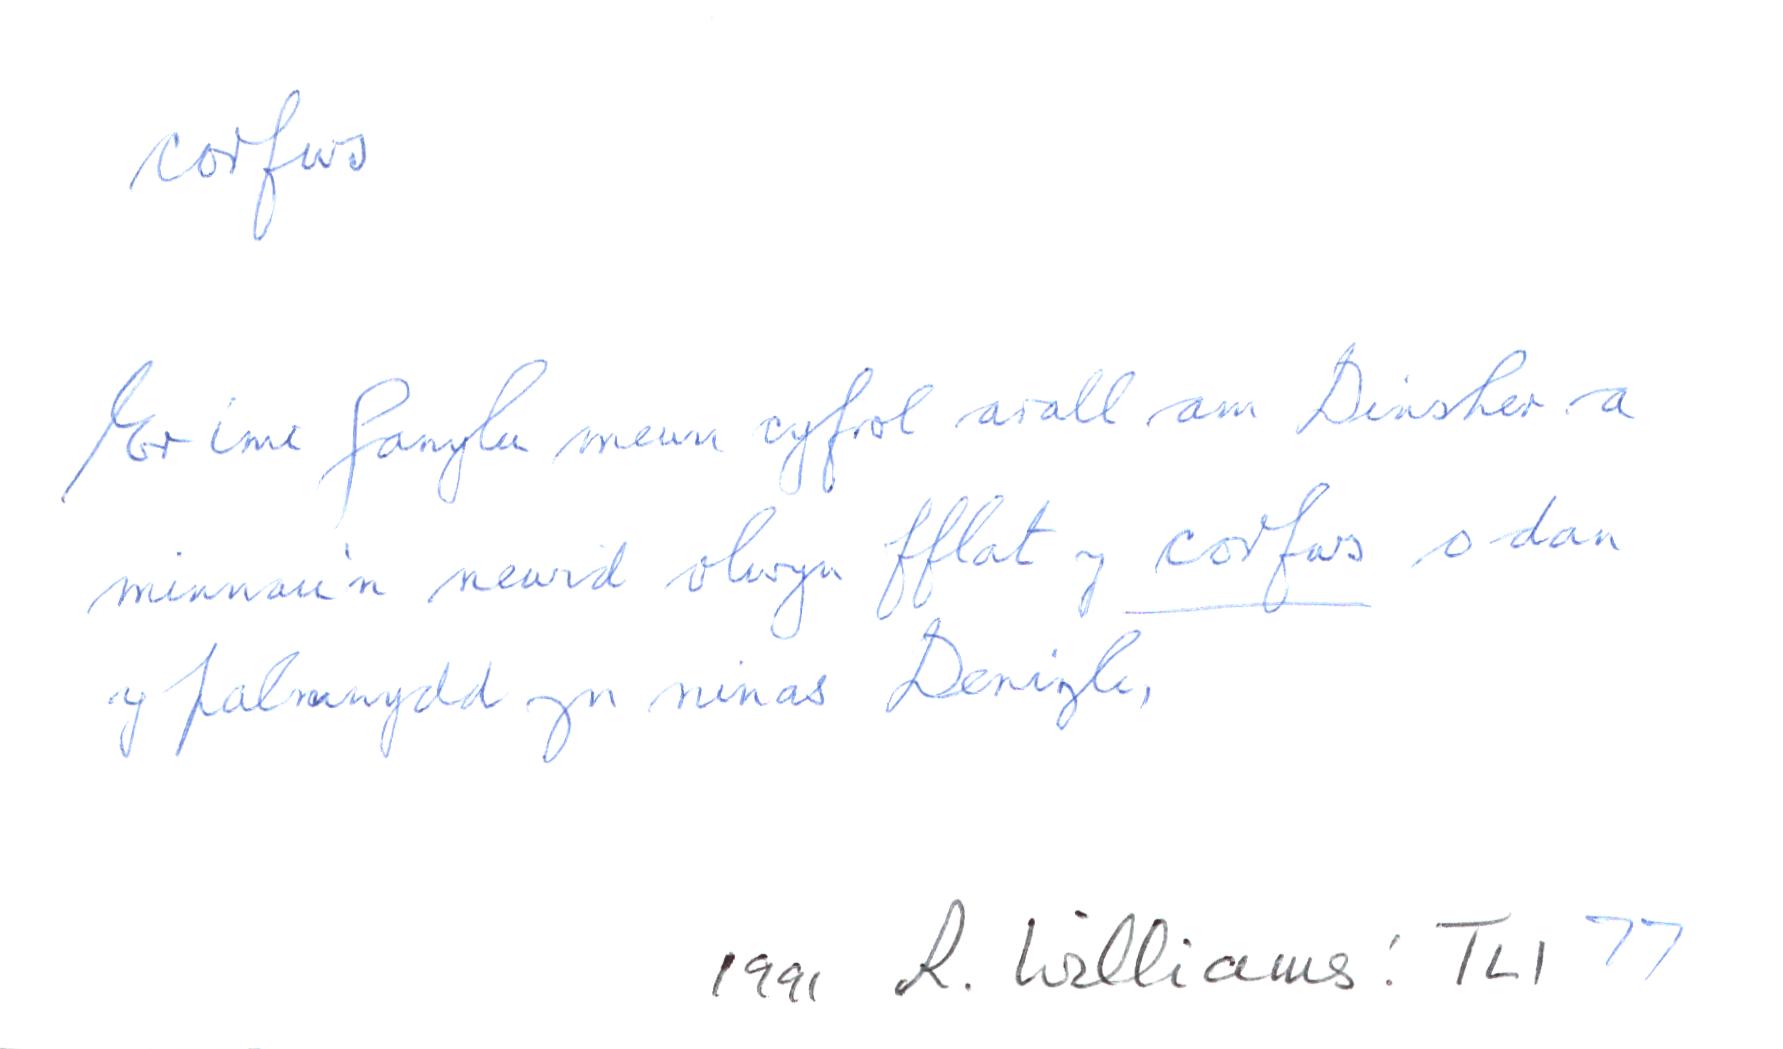 corfws
Er imi ganylu mewn cyfrol arall am Dinsher a
minnau'n newid olwyn fflat y corfws o dan
y palmwydd yn ninas Denizli,
1991 R. Williams: TLI 77